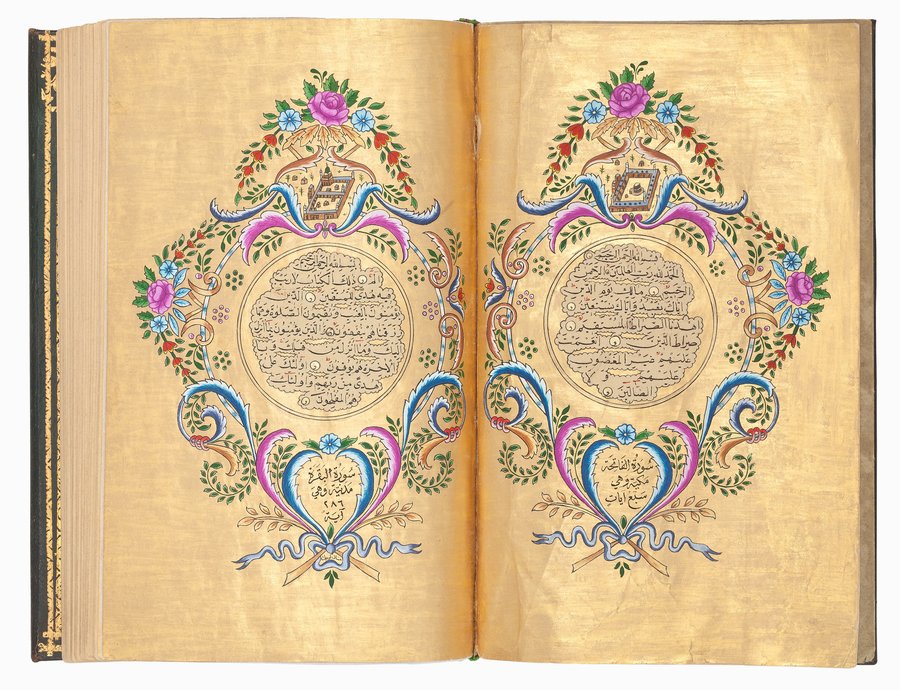 بسم الله الرحمن الرحيم
الحمد لله رب العالمين الرحمن
الرحيم مالك يوم الدين
اياك نعبد واياك نستعين
اهدنا الصراط المستقيم
صراط الذين انعمت
عليهم غير المغضوب
عليهم ولا
الضالين
سورة الفاتحة
مكية وهي
سبع ايات
بسم الله الرحمن الرحيم
الم ذلك الكتاب لا ريب
فيه هدى للمتقين الذين
يؤمنون بالغيب ويقيمون الصلوة ومما
رزقناهم ينفقون والذين يؤمنون بما انزل
اليك وما انزل من قبلك و
بالاخرة هم يوقنون اولئك على
هدى من ربهم واولئك
هم المفلحون
سورة البقرة
مدنية وهي
٢٨٦
آية